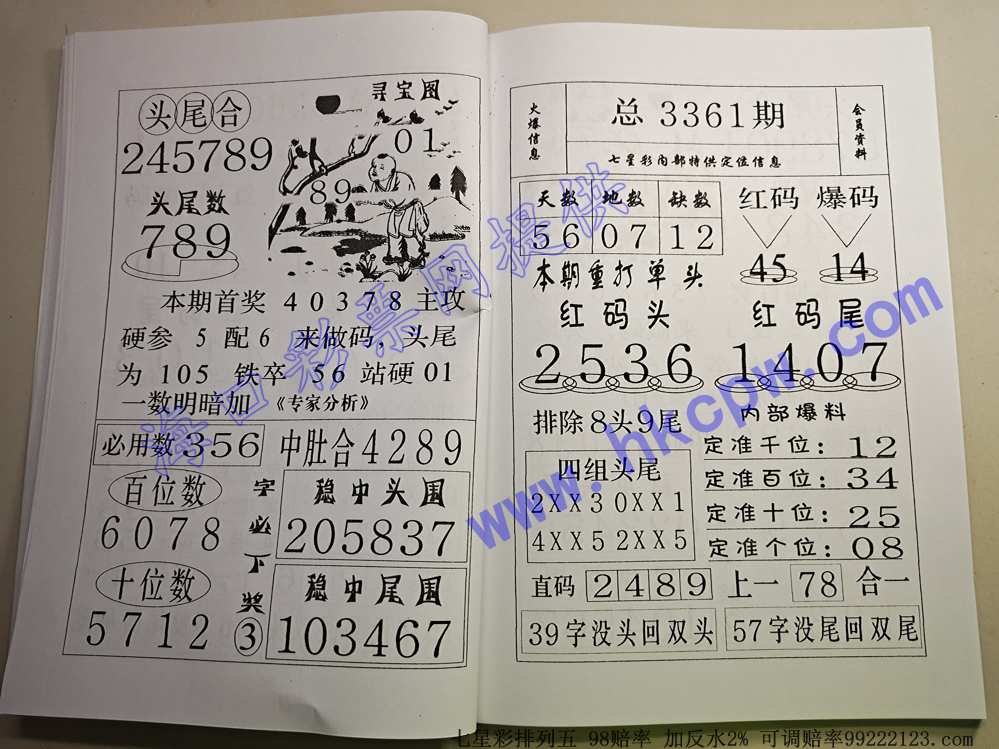 头尾合
245789
寻宝图
01
89
头尾数
789
本期首奖 40378 主攻
硬参 5 配 6 来做码，头尾
为 105 铁卒 56 站硬 01
一数明暗加 《专家分析》
必用数 356
中肚合4289
百位数
6078
十位数
5712
字必下奖
③
稳中头围
205837
稳中尾围
103467
火爆信息
总 3361期
会员资料
七星彩内部特供定位信息
天数 地数 缺数
56 07 12
红码 爆码
45 14
本期重打单头
红码头 红码尾
2536 1407
排除8头9尾
内部爆料
四组头尾
2XX3 0XX1
4XX5 2XX5
定准千位：12
定准百位：34
定准十位：25
定准个位：08
直码 2489 上一 78 合一
39字没头回双头
57字没尾回双尾
海口彩票网提供
www.hkcpw.com
七星彩排列五 98赔率 加反水2% 可调赔率99222123.com